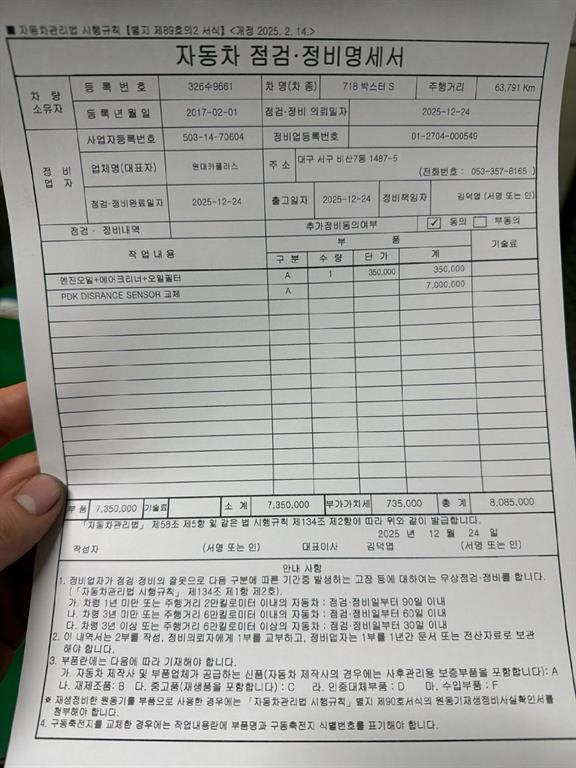 ■ 자동차관리법 시행규칙 [별지 제89호의2 서식] <개정 2025. 2. 14.>
자동차 점검·정비명세서
차 량 소유자
등 록 번 호 326수9661 차 명(차 종) 718 박스터 S 주행거리 63,791 Km
등 록 년 월 일 2017-02-01 점검·정비 의뢰일자 2025-12-24
정 비 업 자
사업자등록번호 503-14-70604 정비업등록번호 01-2704-000549
업체명(대표자) 현대카플러스 주 소 대구 서구 비산7동 1487-5
(전화번호 : 053-357-8165 )
점검·정비완료일자 2025-12-24 출고일자 2025-12-24 정비책임자 김덕엽 (서명 또는 인)
점검 · 정비내역 추가정비동의여부 ✓ 동의 부동의
작 업 내 용 부 품 기술료
구 분 수 량 단 가 계
엔진오일+에어크리너+오일필터 A 1 350,000 350,000
PDK DISRANCE SENSOR 교체 A 7,000,000
부 품 7,350,000 기술료 소 계 7,350,000 부가가치세 735,000 총 계 8,085,000
「자동차관리법」 제58조 제5항 및 같은 법 시행규칙 제134조 제2항에 따라 위와 같이 발급합니다.
2025 년 12 월 24 일
작성자 (서명 또는 인) 대표이사 김덕엽 (서명 또는 인)
안내 사항
1. 정비업자가 점검·정비의 잘못으로 다음 구분에 따른 기간중 발생하는 고장 등에 대하여는 무상점검·정비를 합니다.
(「자동차관리법 시행규칙」 제134조 제1항 제2호).
가. 차령 1년 미만 또는 주행거리 2만킬로미터 이내의 자동차 : 점검·정비일부터 90일 이내
나. 차령 3년 미만 또는 주행거리 6만킬로미터 이내의 자동차 : 점검·정비일부터 60일 이내
다. 차령 3년 이상 또는 주행거리 6만킬로미터 이상의 자동차 : 점검·정비일부터 30일 이내
2. 이 내역서는 2부를 작성, 정비의뢰자에게 1부를 교부하고, 정비업자는 1부를 1년간 문서 또는 전산자료로 보관
해야 합니다.
3. 부품란에는 다음에 따라 기재해야 합니다.
가. 자동차 제작사 및 부품업체가 공급하는 신품(자동차 제작사의 경우에는 사후관리용 보증부품을 포함합니다): A
나. 재제조품 : B 다. 중고품(재생품을 포함합니다) : C 라. 인증대체부품 : D 마. 수입부품 : F
※ 재생정비한 원동기를 부품으로 사용한 경우에는 「자동차관리법 시행규칙」 별지 제90호서식의 원동기재생정비사실확인서를
첨부해야 합니다.
4. 구동축전지를 교체한 경우에는 작업내용란에 부품명과 구동축전지 식별번호를 표기해야 합니다.